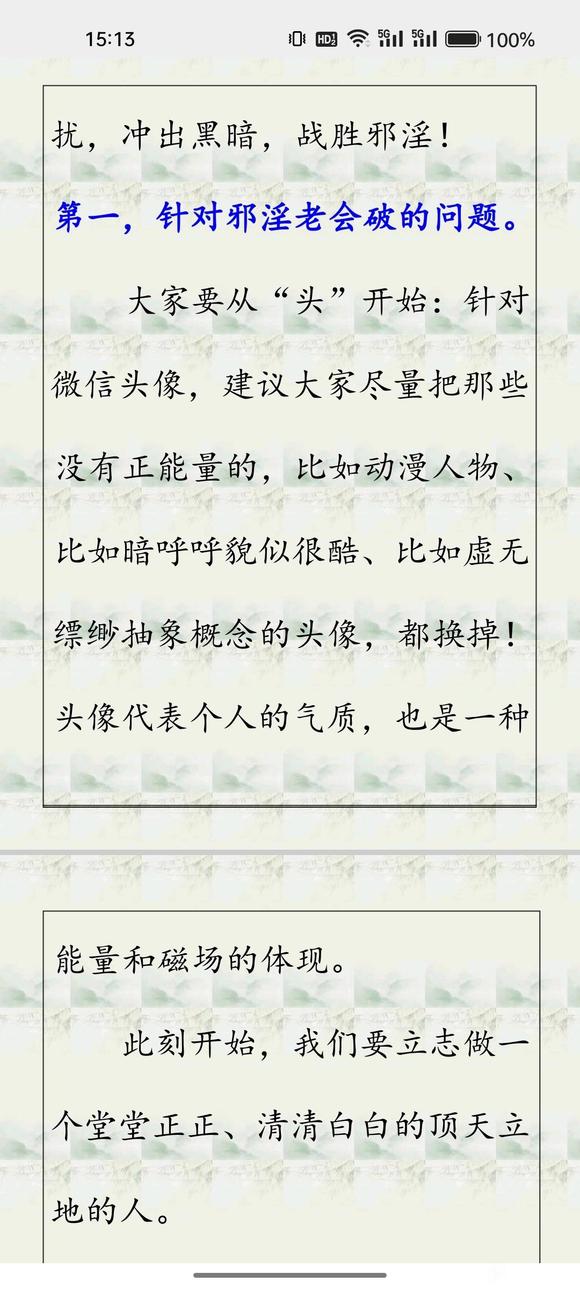 15:13
HD 5G 5G 100%
扰，冲出黑暗，战胜邪淫！
第一，针对邪淫老会破的问题。
大家要从“头”开始：针对
微信头像，建议大家尽量把那些
没有正能量的，比如动漫人物、
比如暗呼呼貌似很酷、比如虚无
缥缈抽象概念的头像，都换掉！
头像代表个人的气质，也是一种
能量和磁场的体现。
此刻开始，我们要立志做一
个堂堂正正、清清白白的顶天立
地的人。